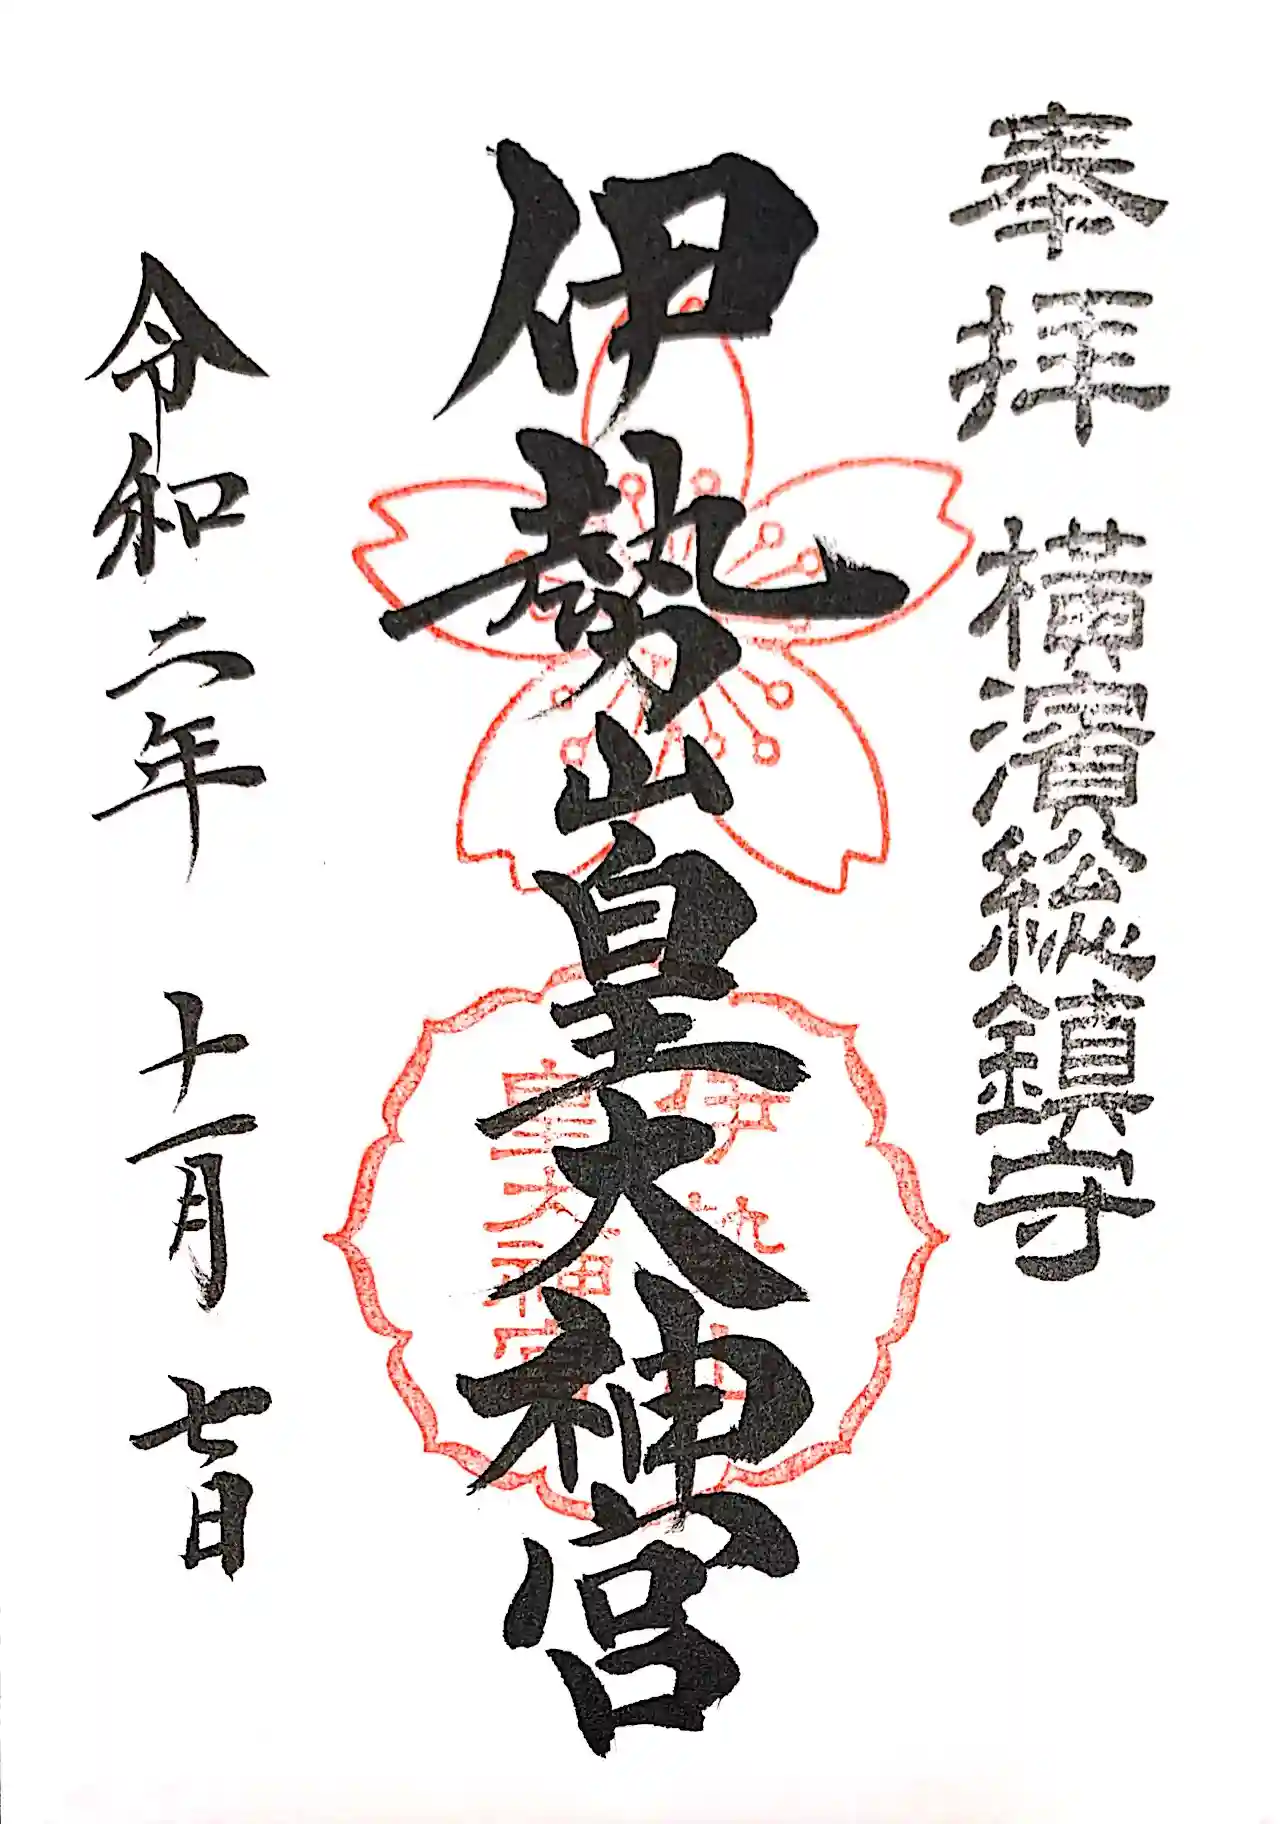 奉拝 横濱総鎮守
伊勢山皇大神宮
伊勢山
皇大神宮
令和二年 十一月 七日